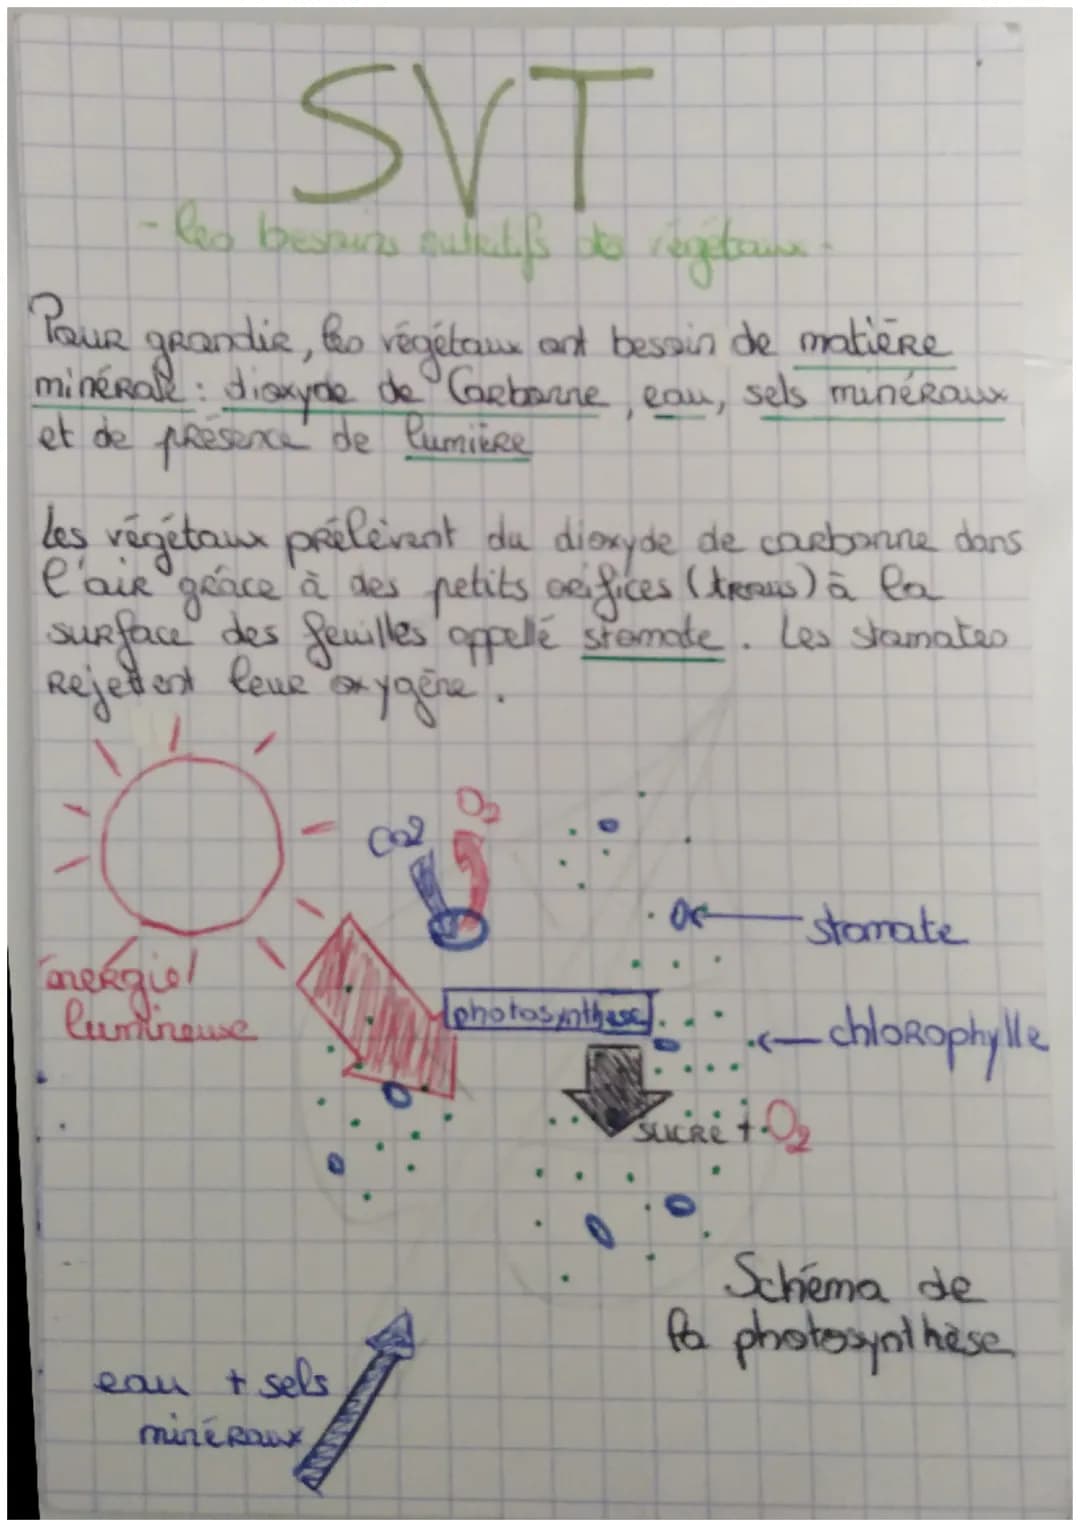 SVT
- les besoins nutritifs des végétaux -
Pour grandir, les végétaux ont besoin de matière
minérale : dioxyde de Carbonne, eau, sels minéraux
et de présence de lumière
Les végétaux prélèvent du dioxyde de carbonne dans
l'air grâce à des petits orifices (trous) à la
surface des feuilles appellé stomate. Les stomates
rejettent leur oxygène.
O2
CO2
stomate
énergie
lumineuse
photosynthèse
chlorophylle
sucre + O2
Schéma de
la photosynthèse
eau + sels
minéraux